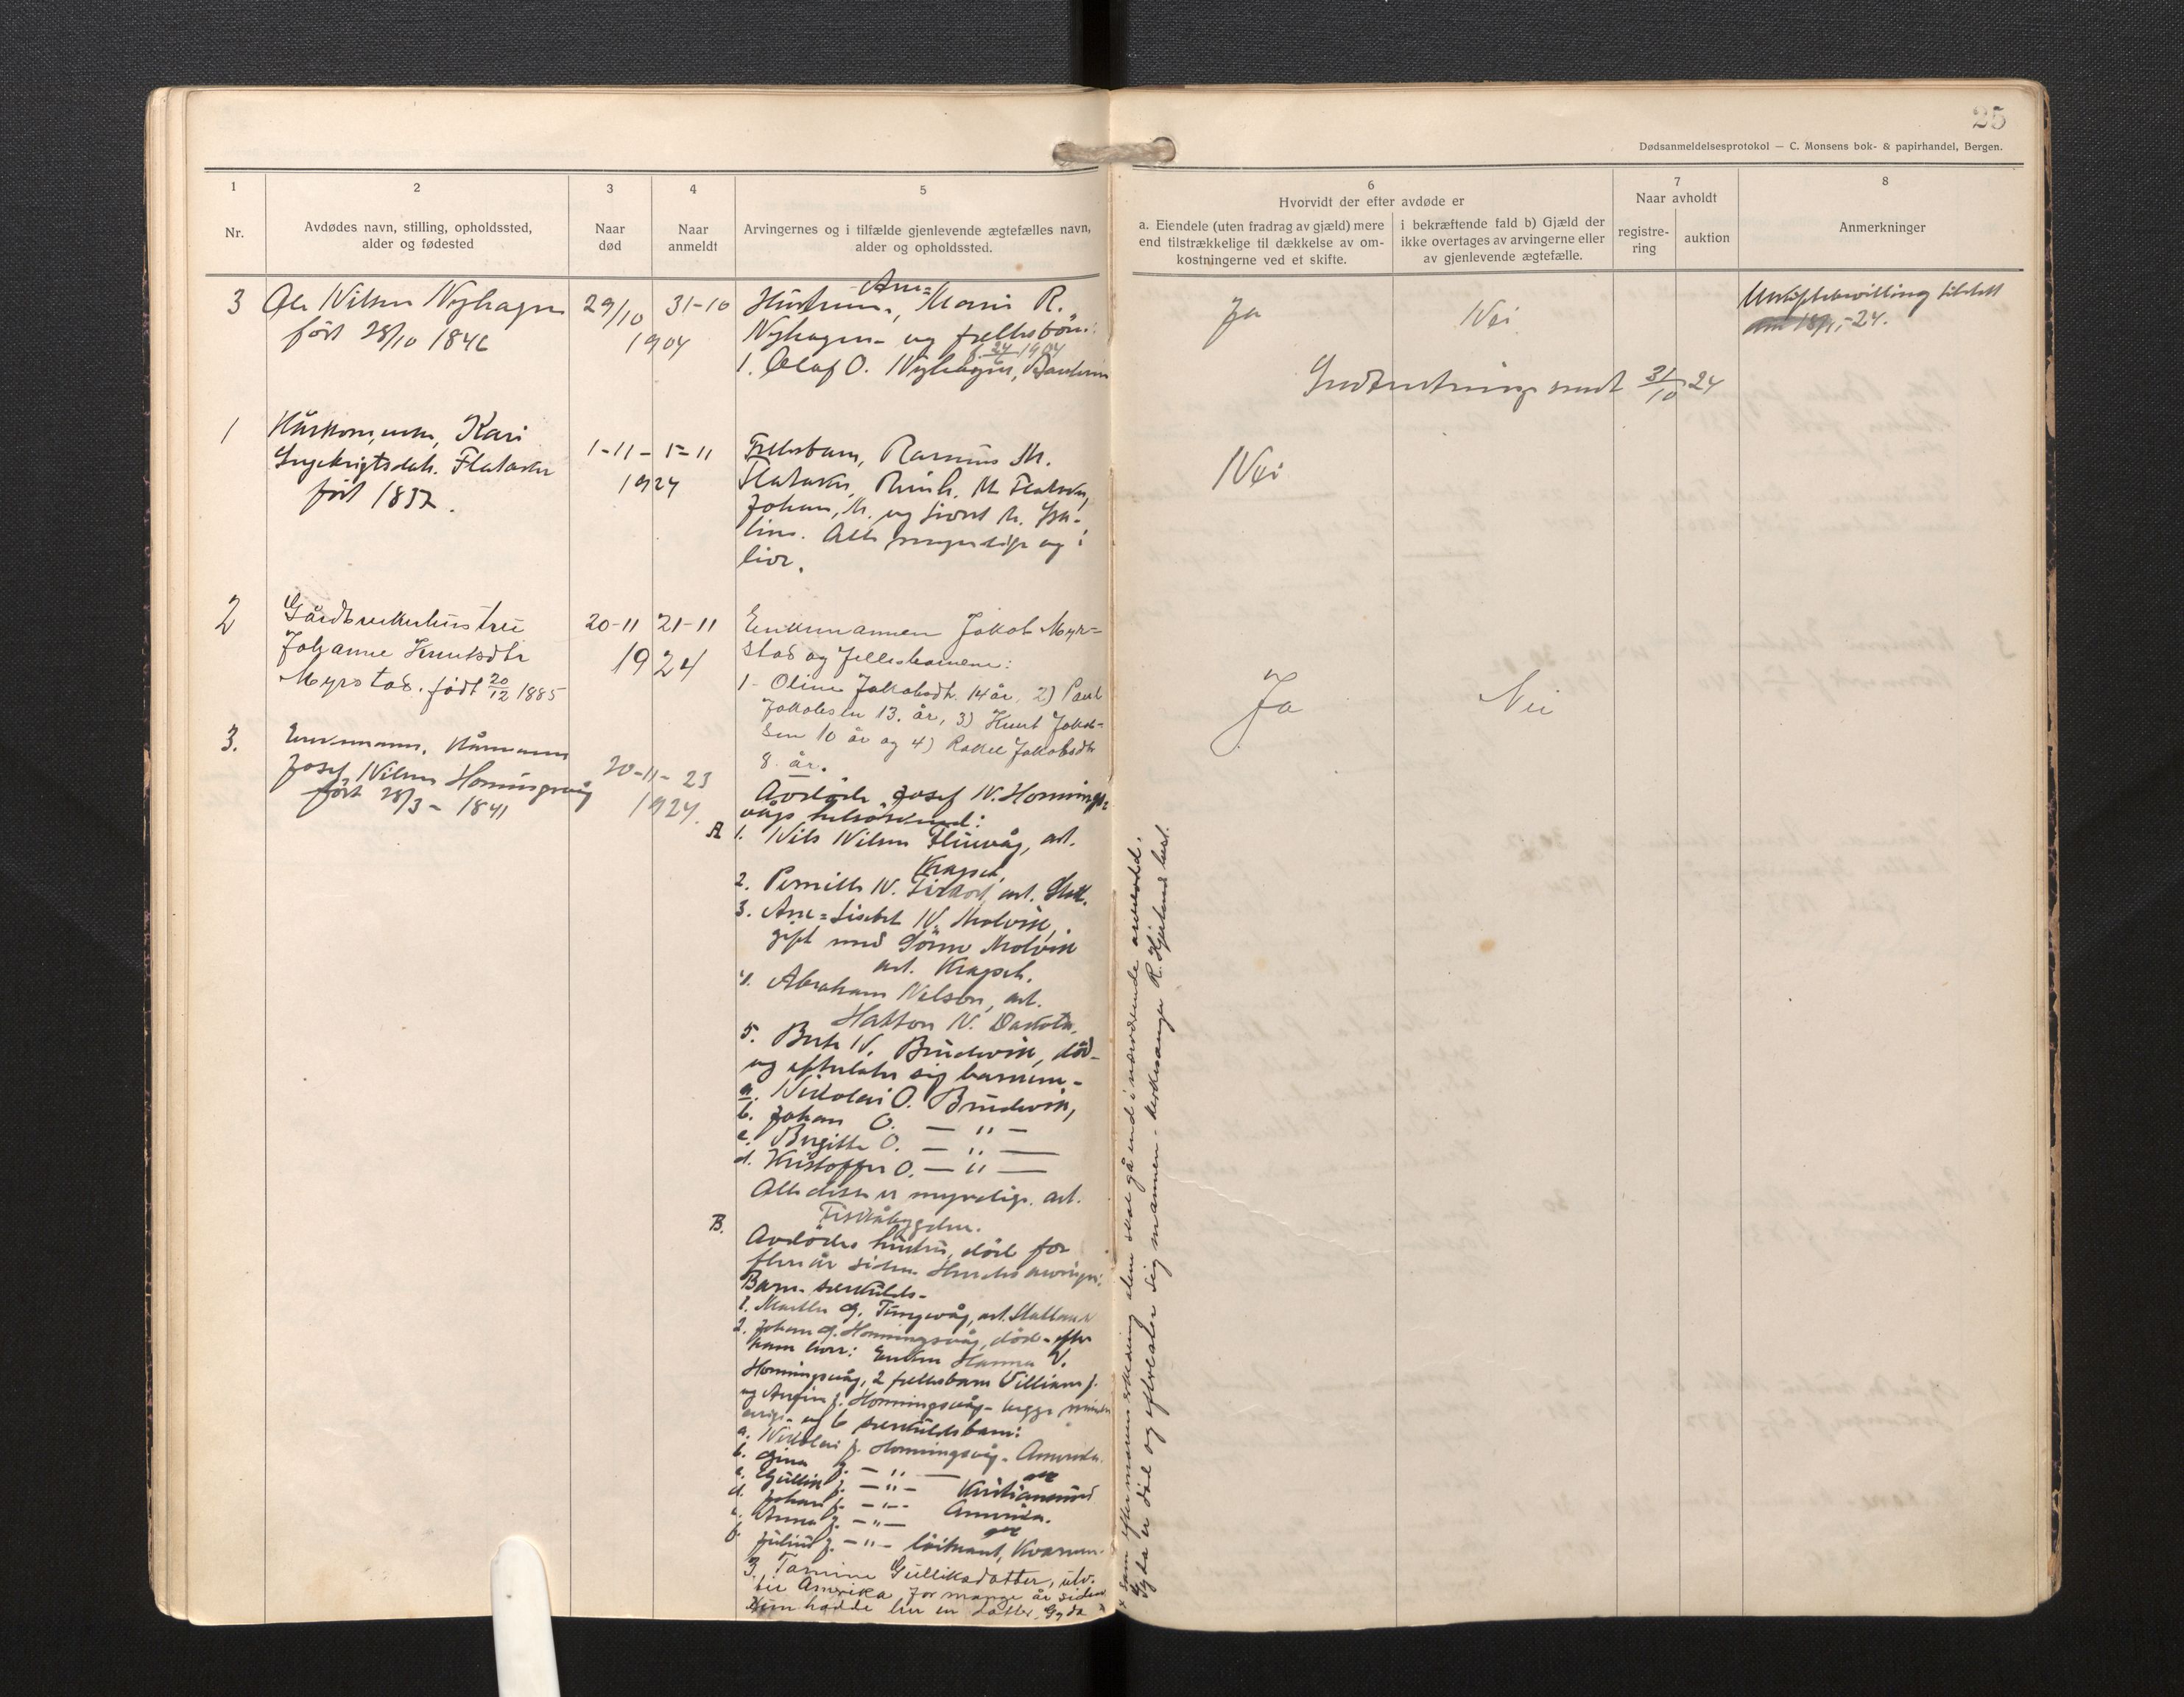 25
Dødsanmeldelsesprotokol — C. Monsens bok- & papirhandel, Bergen.
1
Nr.
2
Avdødes navn, stilling, opholdssted,
alder og fødested
3
Naar
død
4
Naar
anmeldt
5
Arvingernes og i tilfælde gjenlevende ægtefælles navn,
alder og opholdssted.
6
Hvorvidt der efter avdøde er
a. Eiendele (uten fradrag av gjæld) mere
end tilstrækkelige til dækkelse av om-
kostningerne ved et skifte.
i bekræftende fald b) Gjæld der
ikke overtages av arvingerne eller
av gjenlevende ægtefælle.
7
Naar avholdt
registre-
ring
auktion
8
Anmerkninger
3
Ole Nilsen Nyhagen
født 28/10 1846
29/10 31-10
1904
Ane=
Hustruen, Marie R.
Nyhagen - og fellesbörn:
1. Olaf O. Nyhagen,
Ja
Nei
24.
31/10 24
1
Kårkone, enke, Kari
Flataker
født 1837.
1-11 - 1-11
1924
Fellesbarn, Rasmus M.
Flataker,
Johan, M. og Sivert M.
Alle myndige og i
live.
Nei
2
Gårdbrukerhustru
Johanne Knutsdtr
Myrstad. født 20/12 1885
20-11 21-11
1924
Enkemannen Jakob Myr=
stad og fellesbarnene:
1- Oline Jakobsdtr. 14 år, 2) Paul
Jakobsen 13. år, 3) Knut Jakob-
sen 10 år og 4) Rakel Jakobsdtr
8 år.
Ja
Nei
3.
Enkemann, Kårmann
Josef Nilsen Honningsvåg
født 28/3 - 1841
20-11- 23
1924.
Avdøde Josef N. Honnings=
vågs helsöskend:
A
1. Nils Nilsen Flusvåg, ad.
Kragset,
2. Pernille N. ad. Stad.
3. Ane=Lisbet N. Molvik,
gift med Molvik
ad. Kragset.
4. Abraham Nilson, ad.
Hatton N. Dakota.
5. Berte N. Brudevik, död-
og efterlater sig barnene -
a. Nikolai O. Brudevik,
b. Johan O. — " —
c. Birgitte O. — " —
d. Kristoffer O. — " —
Alle disse er myndige. ad.
Fiskåbygden.
B.
Avdødes hustru, död for
flere år siden. Hendes arvinger:
Barn-særkulds-
1. Marthe G. Tungevåg, ad.
2. Johan G. Honningsvåg, död - efter
ham lever: Enken Hanna V.
Honningsvåg, 2 fellesbarn Villiam J.
og J. Honningsvåg - begge
og 6 særkuldsbarn:
a. Nikolai J. Honningsvåg - Amerika.
b. Gina J. — " —
c. Gullik J. — " — Kristiansund
d. Johan J. — " — Amerika.
e. Anna J. — " —
f. Julius J. — " — löitnant,
3. Tomine Gulliksdatter, utv.
til Amerika for mange år siden
Hun hadde her en datter, Gyda x
x som efter mannens erklæring alene skal gå ind i nærværende arveopgj.
Gyda er död og efterlater sig mannen - kirkesanger R. Hjertand lest.